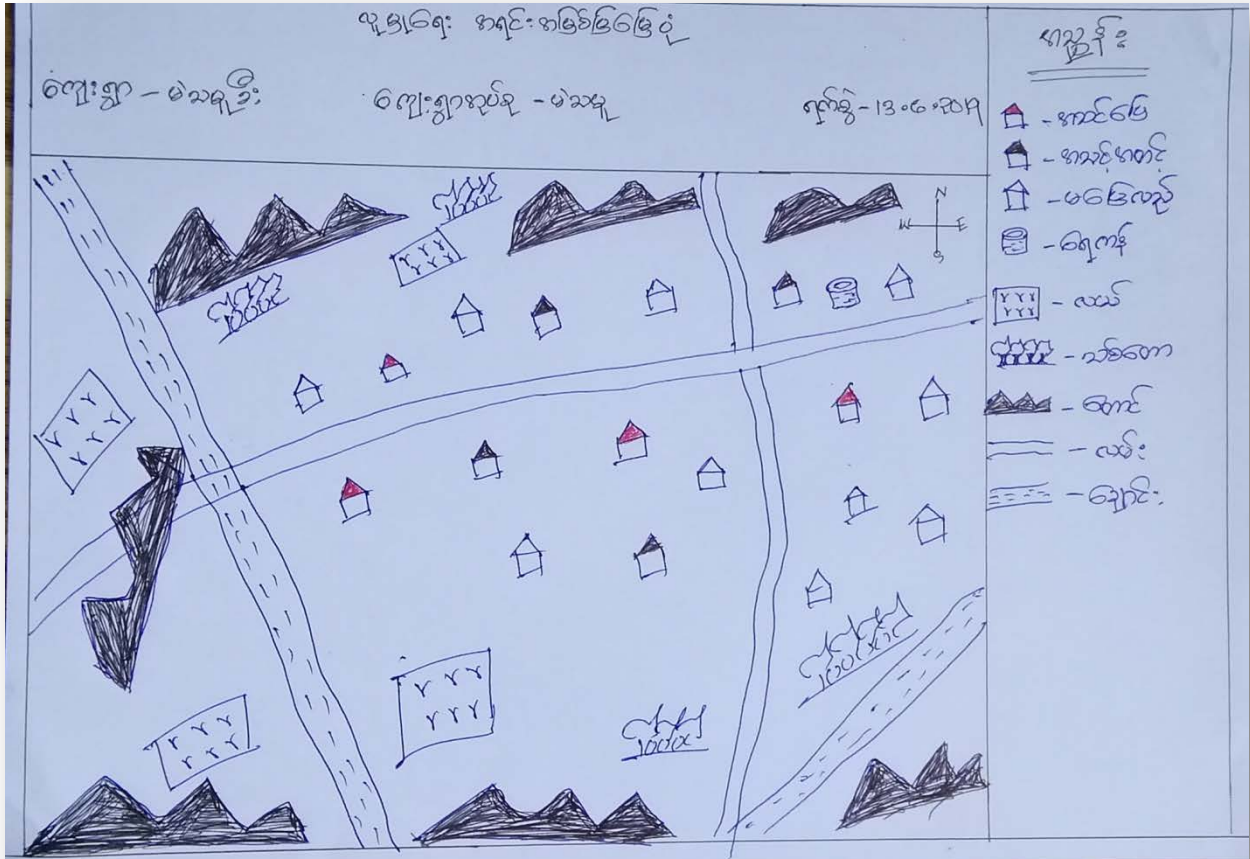 လူမှုရေး အရင်းအမြစ်ပြမြေပုံ
ကျေးရွာ - မဲသမူဦး ကျေးရွာအုပ်စု - မဲသမူ ရက်စွဲ - ၁၃.၆.၂၀၁၇
အညွှန်း
- အဆင်ပြေ
- အသင့်အတင့်
- မပြေလည်
- ရေကန်
- လယ်
- သစ်တော
- တောင်
- လမ်း
- ချောင်း
N
W E
S